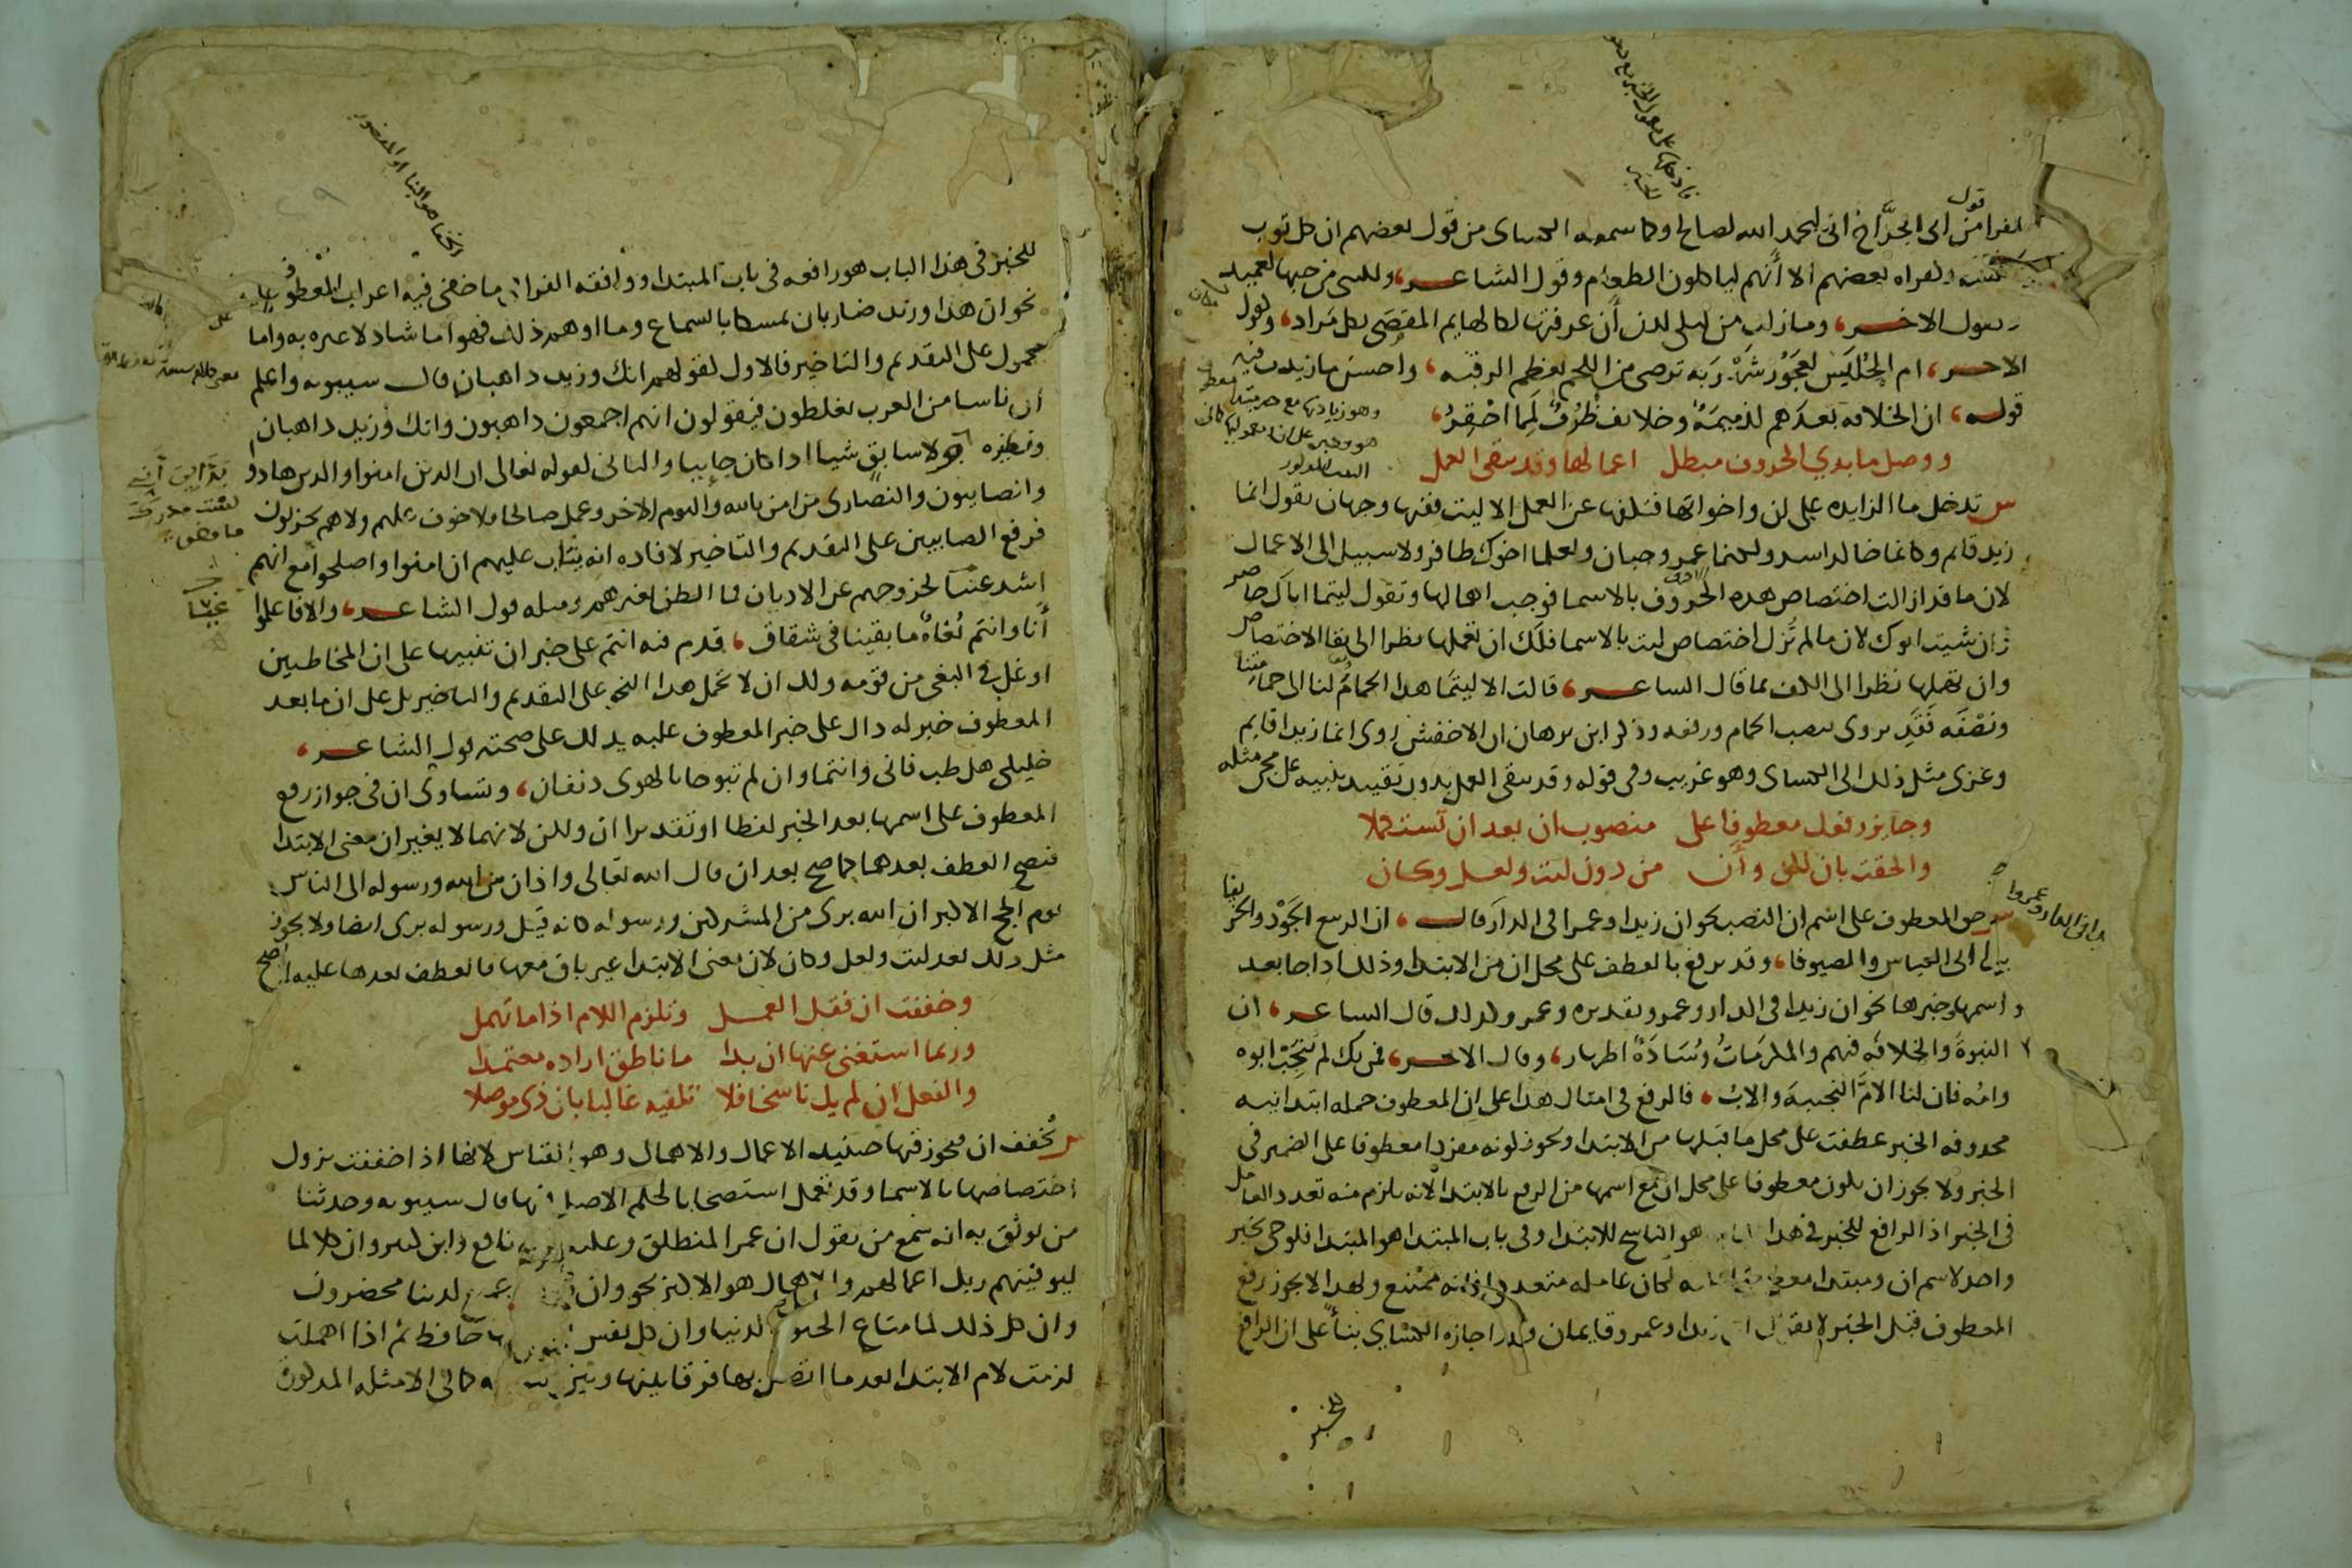 قول
الفرا من ابى الجراح انى لبحمد الله لصالح وما سمعه الكساى من قول بعضهم ان كل ثوب
ثمنه وكقراه بعضهم الا أنهم لياكلون الطعام وقول الشاعر، ولكنى من حبها لعميد
وكقول الاخر، وما زلت من ليلى لدن أن عرفتها لكالهايم المقصى بكل مراد، وكقول
الاخر، ام الحليس لعجوز شهربه ترضى من اللحم بعظم الرقبه، واحسن ما زيدت فيه
قوله، ان الخلافه بعدهم لذميمة وخلايف ظرف لمما احقر،
ووصل ما بذي الحروف مبطل اعمالها وقد يبقى العمل
س تدخل ما الزايده على ان واخواتها فتكفها عن العمل الا ليت ففيها وجهان تقول انما
زيد قايم وكانما خالد اسد ولكنما عمرو جبان ولعلما اخوك ظافر ولا سبيل الى الاعمال
لان ما قد ازالت اختصاص هذه الحروف بالاسما فوجب اهمالها وتقول ليتما اباك حاضر
وان شيت ابوك لان ما لم تزل اختصاص ليت بالاسما فلك ان تعملها نظرا الى بقا الاختصاص
وان تهملها نظرا الى الكف بما قال الشاعر، قالت الا ليتما هذا الحمام لنا الى حمامتنا
ونصفه فقد يروى بنصب الحمام ورفعه وذكر ابن برهان ان الاخفش روى انما زيدا قايم
وعزى مثل ذلك الى الكساى وهو غريب وفى قوله وقد يبقى العمل بدون تقييد تنبيه على مجى مثله
وجايز رفعك معطوفا على منصوب ان بعد ان تستكملا
والحقت بان لكن وأن من دون ليت ولعل وكان
س حق المعطوف على اسم ان النصب نحو ان زيدا وعمرا فى الدار قال، ان الربيع الجود والخريفا
يدا ابى العباس والصيوفا، وقد يرفع بالعطف على محل ان من الابتدا وذلك اذا جا بعد
اسمها وخبرها نحو ان زيدا فى الدار وعمرو تقديره وعمرو كذلك قال الشاعر، ان
النبوة والخلافه فيهم والمكرمات وسادة اطهار، وقال الاخر، فمن يك لم ينجب ابوه
وامه فان لنا الام النجيبه والاب، فالرفع فى امثال هذا على ان المعطوف جمله ابتدائيه
محذوفه الخبر عطفت على محل ما قبلها من الابتدا ويجوز كونه مفردا معطوفا على الضمير فى
الخبر ولا يجوز ان يكون معطوفا على محل ان مع اسمها من الرفع بالابتدا لانه يلزم منه تعدد العامل
فى الخبر اذ الرافع للخبر فى هذا هو الناسخ للابتدا وفى باب المبتدا هو المبتدا فلو جى بخبر
واحد لاسم ان ومبتدا معطوف عليه لكان عامله متعددا وانه ممتنع ولهذا لا يجوز رفع
المعطوف قبل الخبر لا تقول ان زيدا وعمرو قايمان وقد اجازه الكساي بناً على ان الرافع
للخبر
للخبر فى هذا الباب هو رافعه فى باب المبتدا ووافقه الفرا فيما خفى فيه اعراب المعطوف عليه
نحو ان هذا وزيد ضاربان تمسكا بالسماع وما اوهم ذلك فهو اما شاذ لا عبره به واما
محمول على التقديم والتاخير فالاول كقولهم انك وزيد ذاهبان قال سيبويه واعلم
ان ناسا من العرب يغلطون فيقولون انهم اجمعون ذاهبون وانك وزيد ذاهبان
ونظيره ولا سابق شيا اذا كان جاييا والثانى كقوله تعالى ان الذين امنوا والذين هادو
والصابيون والنصارى من امن بالله واليوم الاخر وعمل صالحا فلا خوف عليهم ولا هم يحزنون
فرفع الصابيين على التقديم والتاخير لافاده انه يتاب عليهم ان امنوا واصلحوا مع انهم
اشد عتيا لخروجهم عن الاديان فما الظن بغيرهم ومثله قول الشاعر، والا فاعلموا
أنا وانتم بُغاة ما بقينا فى شقاق، قدم فيه انتم على خبر ان تنبيها على ان المخاطبين
اوغل فى البغى من قومه ولك ان لا تحمل هذا النحو على التقديم والتاخير بل على ان ما بعد
المعطوف خبر له دال على خبر المعطوف عليه يدلك على صحته قول الشاعر،
خليلى هل طب فانى وانتما وان لم تبوحا بالهوى دنفان، وتساوى ان فى جواز رفع
المعطوف على اسمها بعد الخبر لفظا او تقديرا ان ولكن لانهما لا يغيران معنى الابتدا
فيصح العطف بعدهما كما صح بعد ان قال الله تعالى واذان من الله ورسوله الى الناس
يوم الحج الاكبر ان الله برى من المشركين ورسوله كانه قيل ورسوله برى ايضا ولا يجوز
مثل ذلك بعد ليت ولعل وكان لان معنى الابتدا غير باق معها فالعطف بعدها عليه لا يصح
وخففت ان فقل العمل وتلزم اللام اذا ما تهمل
وربما استغنى عنها ان بدا ما ناطق اراده معتمدا
والفعل ان لم يك ناسخا فلا تلفيه غالبا بان ذى موصلا
س تُخفف ان فيجوز فيها حينيذ الاعمال والاهمال وهو القياس لانها اذا خففت يزول
اختصاصها بالاسما وقد تعمل استصحابا لحكم الاصل فيها قال سيبويه وحدثنا
من يوثق به انه سمع من يقول ان عمرا لمنطلق وعليه قراءة نافع وابن كثير وان كلا لما
ليوفينهم ربك اعمالهم والاهمال هو الاكثر نحو وان كل لما جميع لدينا محضرون
وان كل ذلك لما متاع الحيوة الدنيا وان كل نفس لما عليها حافظ ثم اذا اهملت
لزمت لام الابتدا بعد ما اتصل بها فرقا بينها وبين كما فى الامثله المذكورة